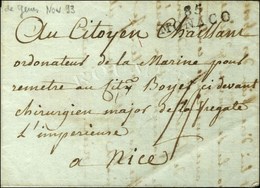 de Genes Nov 93
85
MONACO
Au Citoyen Chaillant
ordonateur de la Marine pour
remetre au City Boyer ci devant
chirurgien major de la fregate
L'imperieuse
a Nice